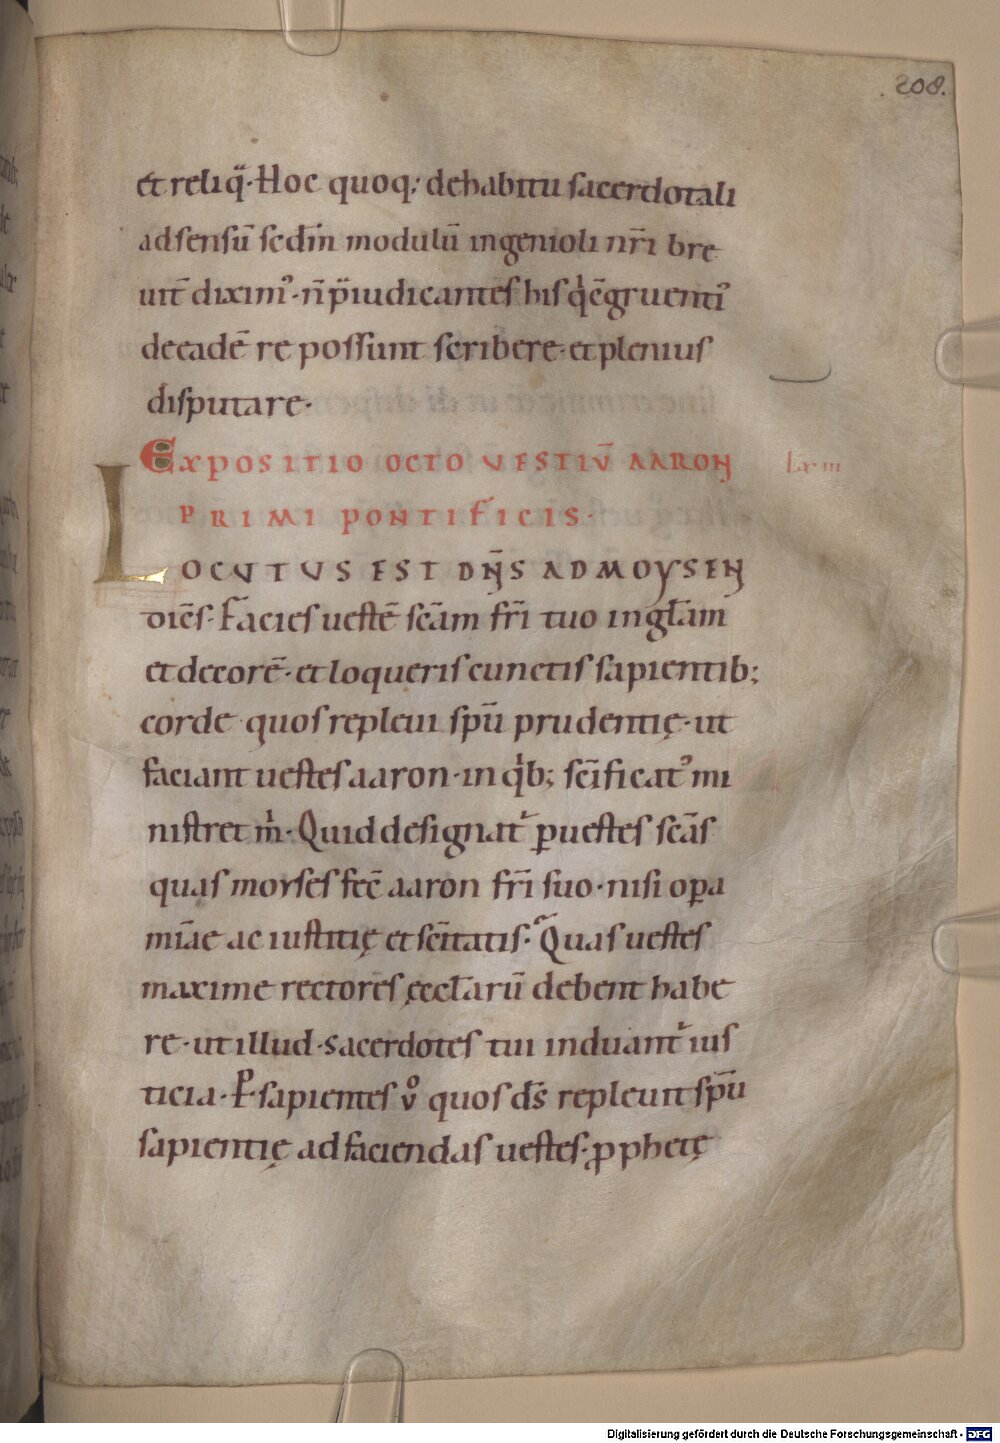 208.
et reliq̃. Hoc quoq; dehabitu sacerdotali
adsensũ scdm̃ modulũ ingenioli nr̃i bre
uit̃ diximꝰ. ñ p̃iudicantes his q̇ cẽgruentiꝰ
decadẽ re possunt scribere. et plenius
disputare.
EXPOSITIO OCTO VESTIṼ AARON
LXIII
PRIMI PONTIFICIS.
LOCVTVS EST DÑS AD MOYSEN
diẽs. Facies uestẽ scãm fr̃i tuo in gl̃am
et decorẽ. et loqueris cunctis sapientib;
corde quos repleui sp̃u prudentię. ut
faciant uestes aaron. in q̇b; scĩficatꝰ mi
nistret m̃. Quid designat᷑ ꝑuestes scãs
quas moyses fec̃ aaron fr̃i suo. nisi oꝑa
mĩae ac iustitię et scĩtatis. Quas uestes
maxime rectores ęccl̃arũ debent habe
re. ut illud. Sacerdotes tui induant᷑ ius
ticia. P̃. sapientes v̊ quos ds̃ repleuit sp̃u
sapientię ad faciendas uestes. ꝓphetę
Digitalisierung gefördert durch die Deutsche Forschungsgemeinschaft - DFG